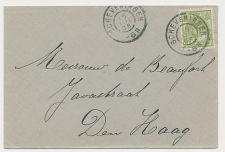 SCHEVENINGEN
SCHEVENINGEN
Mevrouw de Beaufort
Javastraat
Den Haag